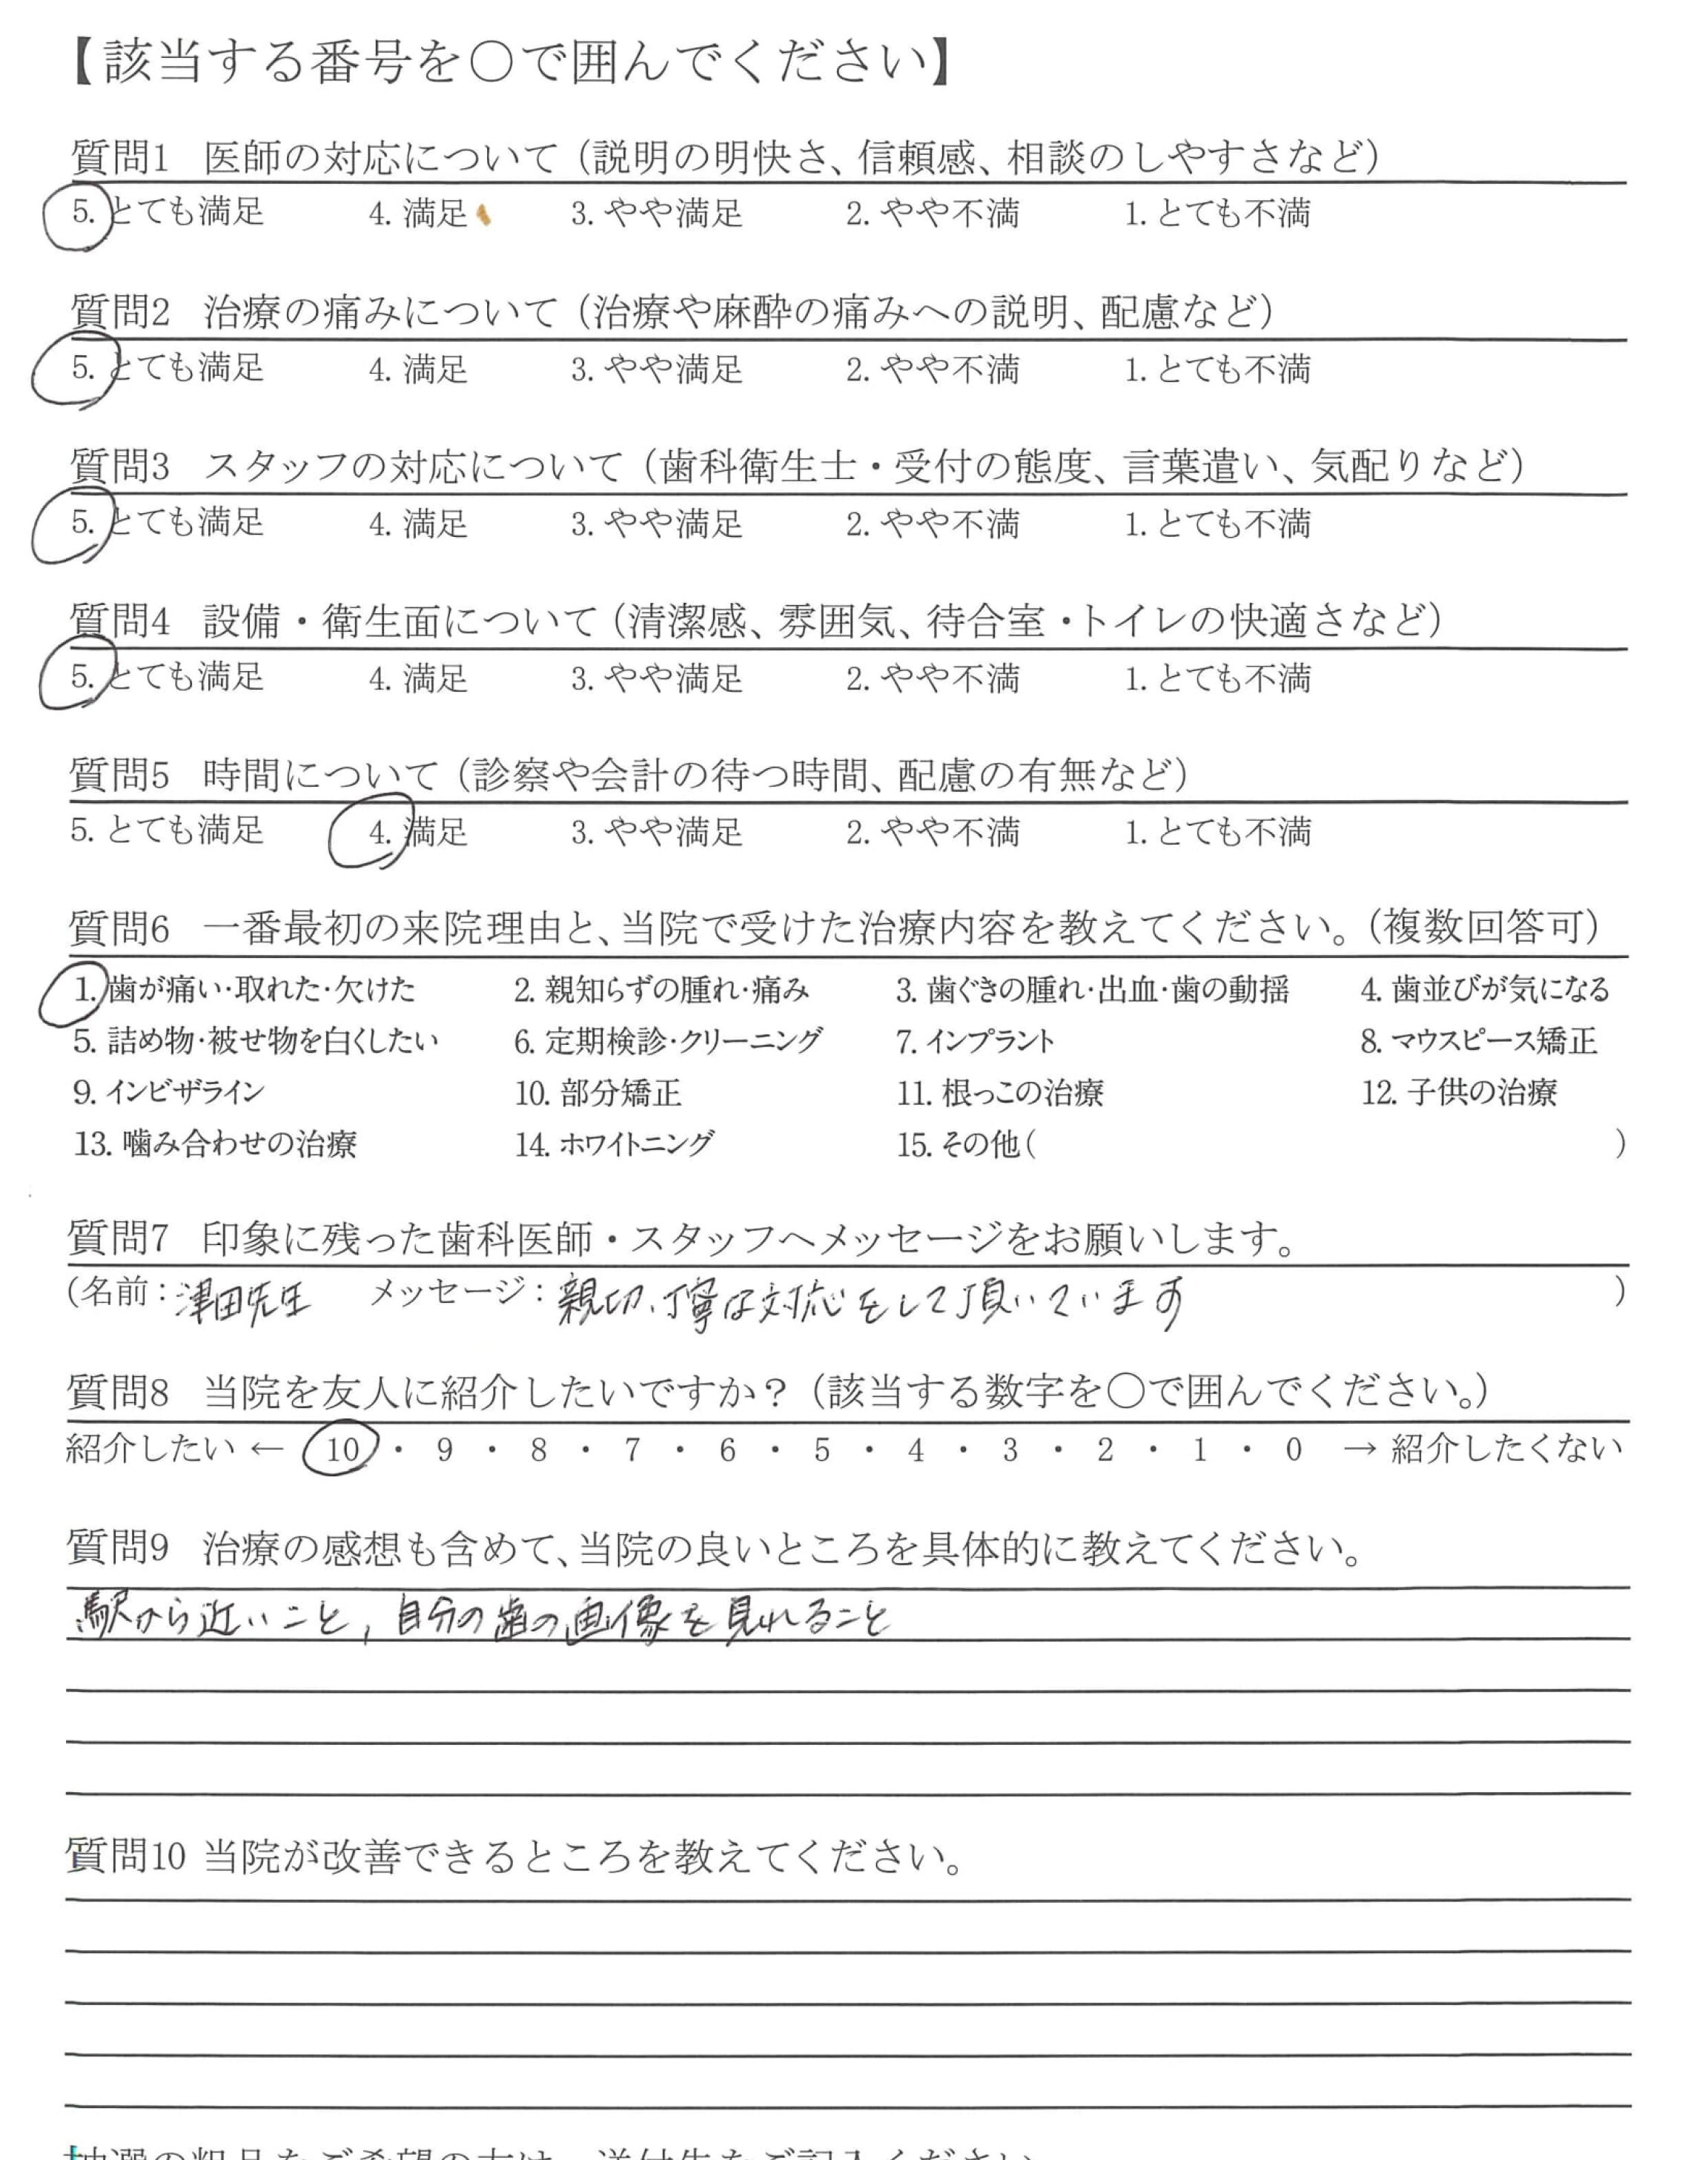 【該当する番号を○で囲んでください】
質問1 医師の対応について（説明の明快さ、信頼感、相談のしやすさなど）
5. とても満足 4. 満足 3. やや満足 2. やや不満 1. とても不満
質問2 治療の痛みについて（治療や麻酔の痛みへの説明、配慮など）
5. とても満足 4. 満足 3. やや満足 2. やや不満 1. とても不満
質問3 スタッフの対応について（歯科衛生士・受付の態度、言葉遣い、気配りなど）
5. とても満足 4. 満足 3. やや満足 2. やや不満 1. とても不満
質問4 設備・衛生面について（清潔感、雰囲気、待合室・トイレの快適さなど）
5. とても満足 4. 満足 3. やや満足 2. やや不満 1. とても不満
質問5 時間について（診察や会計の待つ時間、配慮の有無など）
5. とても満足 4. 満足 3. やや満足 2. やや不満 1. とても不満
質問6 一番最初の来院理由と、当院で受けた治療内容を教えてください。（複数回答可）
1. 歯が痛い・取れた・欠けた 2. 親知らずの腫れ・痛み 3. 歯ぐきの腫れ・出血・歯の動揺 4. 歯並びが気になる
5. 詰め物・被せ物を白くしたい 6. 定期検診・クリーニング 7. インプラント 8. マウスピース矯正
9. インビザライン 10. 部分矯正 11. 根っこの治療 12. 子供の治療
13. 噛み合わせの治療 14. ホワイトニング 15. その他（ ）
質問7 印象に残った歯科医師・スタッフへメッセージをお願いします。
（名前：津田先生 メッセージ：親切、丁寧な対応をして頂いています ）
質問8 当院を友人に紹介したいですか？（該当する数字を○で囲んでください。）
紹介したい ← 10 ・ 9 ・ 8 ・ 7 ・ 6 ・ 5 ・ 4 ・ 3 ・ 2 ・ 1 ・ 0 → 紹介したくない
質問9 治療の感想も含めて、当院の良いところを具体的に教えてください。
駅から近いこと，自分の歯の画像を見れること
質問10 当院が改善できるところを教えてください。